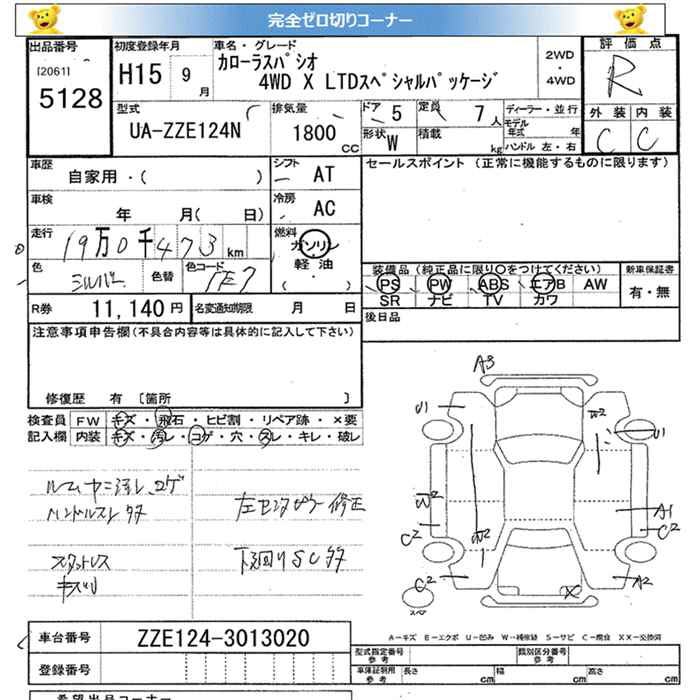 完全ゼロ切りコーナー
出品番号
[2061]
5128
初度登録年月
H15 9月
車名・グレード
カローラスパシオ
4WD X LTDスペシャルパッケージ
2WD
・
4WD
評価点
R
型式
UA-ZZE124N
排気量
1800 CC
ドア 5
定員 7人
形状 W
積載 kg
ディーラー・並行
モデル年式 年
ハンドル 左・右
外装 内装
C C
車歴
自家用・( )
シフト AT
セールスポイント (正常に機能するものに限ります)
車検
年 月( 日)
冷房 AC
走行
19万0千473km
燃料
ガソリン
軽油
( ・ )
色 シルバー
色替
色コード 1E7
装備品 (純正品に限り○をつけてください)
PS PW ABS エアB AW
SR ナビ TV カワ
新車保証書
有・無
R券 11,140円
名変通知期限 月 日
後日品
注意事項申告欄(不具合内容等は具体的に記入して下さい)
修復歴 有 〔箇所 〕
検査員記入欄
FW キズ・飛石・ヒビ割・リペア跡・×要
内装 キズ・汚レ・コゲ・穴・スレ・キレ・破レ
ルームヤニ汚レ、コゲ
ハンドルスレ タタ
左センタピラー修正
スタットレス
キズU
下廻りSC タタ
A3
U1
W2
U1
W2
C2
W2
A1
C2
C2
A2
X
スペア
A-キズ E-エクボ U-凹み W-補修跡 S-サビ C-腐食 XX-交換済
車台番号 ZZE124-3013020
登録番号
型式指定番号 参考
類別区分番号 参考
車庫証明用 参考
長さ cm
幅 cm
高さ cm
希望出品コーナー